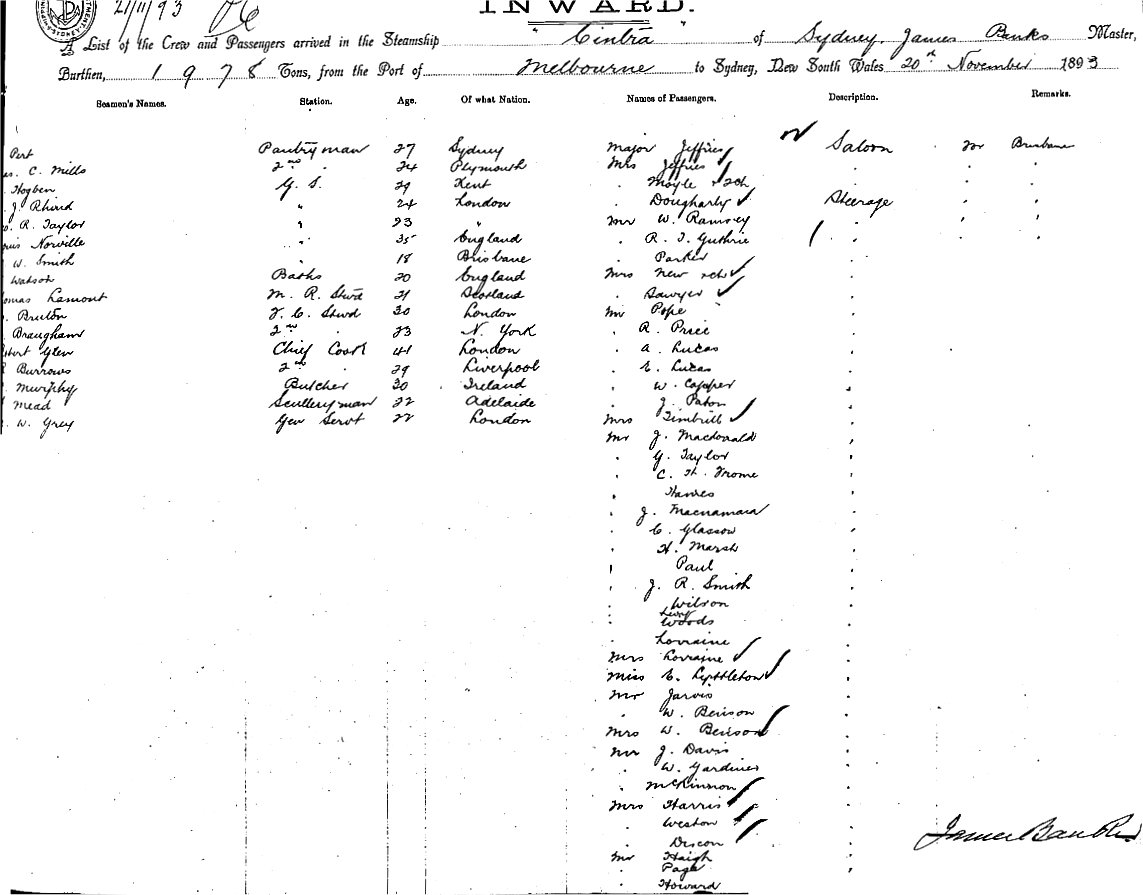 21/11/93
INWARD.
A List of the Crew and Passengers arrived in the Steamship "Cintra" of Sydney, James Banks Master,
Burthen, 1978 Tons, from the Port of Melbourne to Sydney, New South Wales 20th November 1893
Seamen's Names. Station. Age. Of what Nation. Names of Passengers. Description. Remarks.
Pert Pantryman 27 Sydney Major Jeffries Saloon for Brisbane
C. Mills 2nd " 24 Plymouth Mrs Jeffries " " "
Hogben G. S. 29 Kent " Moyle & 2ch " " "
J. Rhind " 24 London " Dougharty Steerage " "
R. Taylor " 23 " Mr W. Ramsey " " "
Norville " 35 England " R. J. Guthrie " "
W. Smith " 18 Brisbane " Parker "
Watson Baths 20 England Mrs New & ch "
omas Lamont M. R. Stwd 21 Scotland " Sawyer "
Bruton F. C. Stwd 30 London Mr Pope "
Braugham 2nd " 23 N. York " R. Price "
Glen Chief Cook 41 London " A. Lucas "
Burrows 2nd " 29 Liverpool " E. Lucas "
Murphy Butcher 30 Ireland " W. Capper "
Mead Scullery man 22 Adelaide " J. Paton "
W. Grey Gen Servt 22 London Mrs Timbrill "
Mr J. Macdonald "
" G. Taylor "
" C. H. Frome "
" Hawes "
" J. Macnamara "
" C. Glassow "
" H. Marsh "
" Paul "
" J. R. Smith "
" Wilson "
" Woods "
" Lorraine "
Mrs Lorraine "
Miss E. Lyttleton "
Mr Jarvis "
" W. Benson "
Mrs W. Benson "
Mr J. Davis "
" W. Gardiner "
" McKinnon "
Mrs Harris "
" Weston "
" Discon "
Mr Haigh "
" Page "
" Howard
James Banks